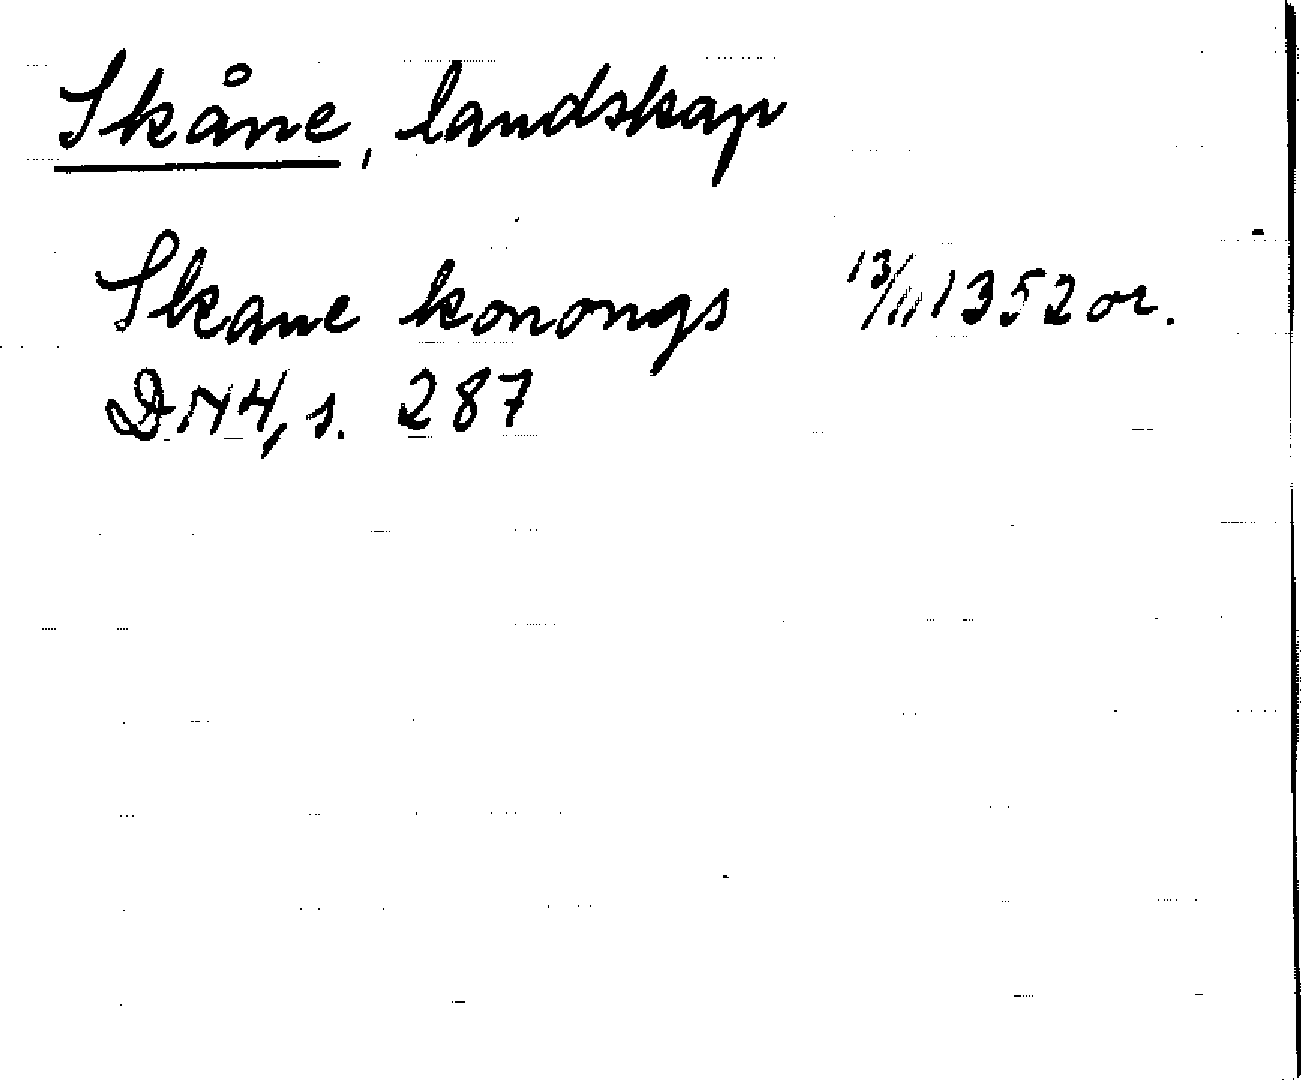 Skåne, landskap
Skane konongs 13/11 1352 or.
DN4, s. 287